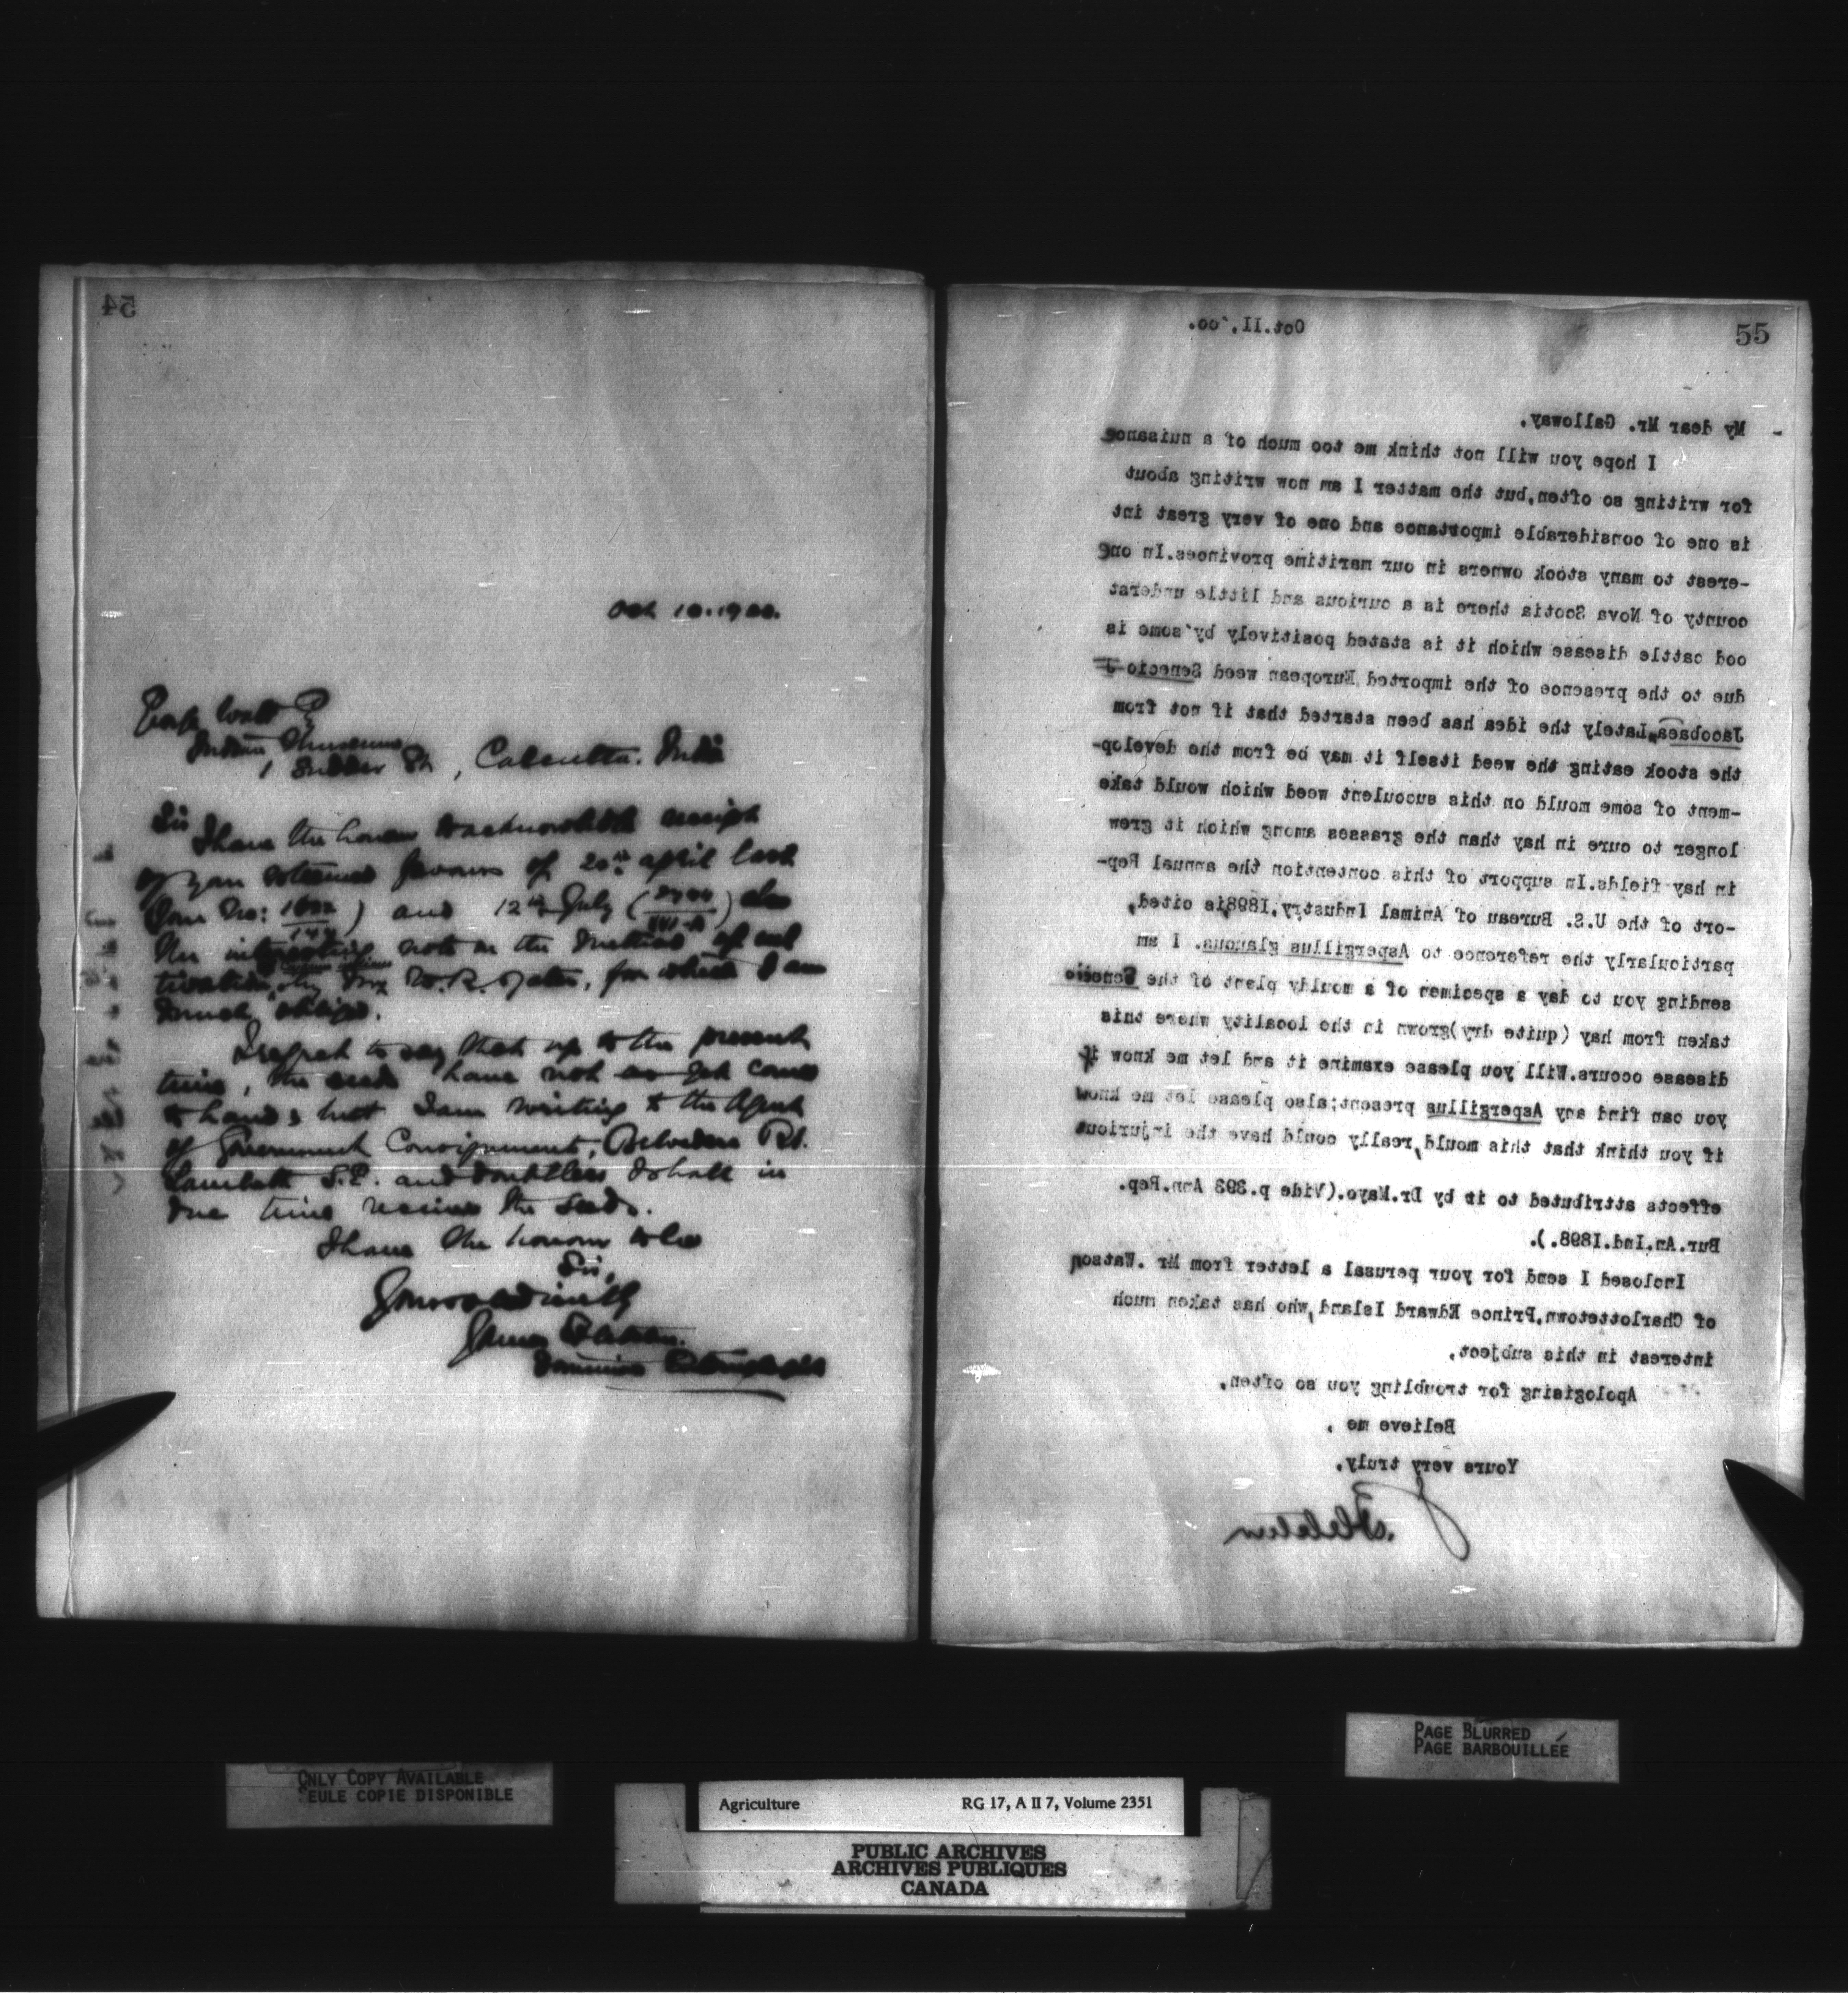 54
Oct 10. 1900.
George Watt
Indian Museum
1 Sudder St, Calcutta. India
Sir
I have the honour to acknowledge receipt
of your esteemed favours of 20th April last
(your No: ) and 12th July ( ) also
the interesting note on the method of cul
tivation by Mr W. R. Yates, for which I am
much obliged.
I regret to say that up to the present
time, the seeds have not as yet come
to hand, but I am writing to the Agent
of Government Consignments, Belvedere Rd.
Lambeth S.E. and doubtless I shall in
due time receive the seeds.
I have the honour to be
Sir,
Yours obediently
James Fletcher.
Dominion Entomologist
55
Oct.II,'oo.
My dear Mr. Galloway,
I hope you will not think me too much of a nuisance
for writing so often,but the matter I am now writing about
is one of considerable importance and one of very great int
-erest to many stock owners in our maritime provinces.In one
county of Nova Scotia there is a curious and little underst
ood cattle disease which it is stated positively by some is
due to the presence of the imported European weed Senecio J
Jacobaea,Lately the idea has been started that if not from
the stock eating the weed itself it may be from the develop-
-ment of some mould on this succulent weed which would take
longer to cure in hay than the grasses among which it grew
in hay fields.In support of this contention the annual Rep-
-ort of the U.S. Bureau of Animal Industry,I898,is cited,
particularly the reference to Aspergillus glaucus. I am
sending you to day a specimen of a mouldy plant of the Senecio
taken from hay (quite dry)grown in the locality where this
disease occurs.Will you please examine it and let me know if
you can find any Aspergillus present;also please let me know
if you think that this mould,really could have the injurious
effects attributed to it by Dr.Mayo.(Vide p.393 Ann.Rep.
Bur.An.Ind.I898.).
Inclosed I send for your perusal a letter from Mr .Watson
of Charlottetown,Prince Edward Island,who has taken much
interest in this subject.
Apologising for troubling you so often,
Believe me ,
Yours very truly,
J. Fletcher
ONLY COPY AVAILABLE
SEULE COPIE DISPONIBLE
PAGE BLURRED
PAGE BARBOUILLÉE
Agriculture RG 17, A II 7, Volume 2351
PUBLIC ARCHIVES
ARCHIVES PUBLIQUES
CANADA